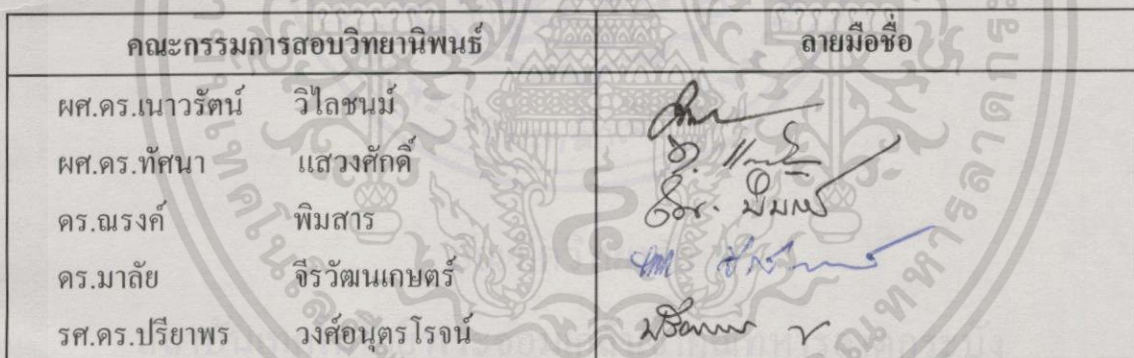 คณะกรรมการสอบวิทยานิพนธ์ ลายมือชื่อ
ผศ.ดร.เนาวรัตน์ วิไลชนม์
ผศ.ดร.ทัศนา แสวงศักดิ์
ดร.ณรงค์ พิมสาร
ดร.มาลัย จีรวัฒนเกษตร์
รศ.ดร.ปรียาพร วงศ์อนุตรโรจน์